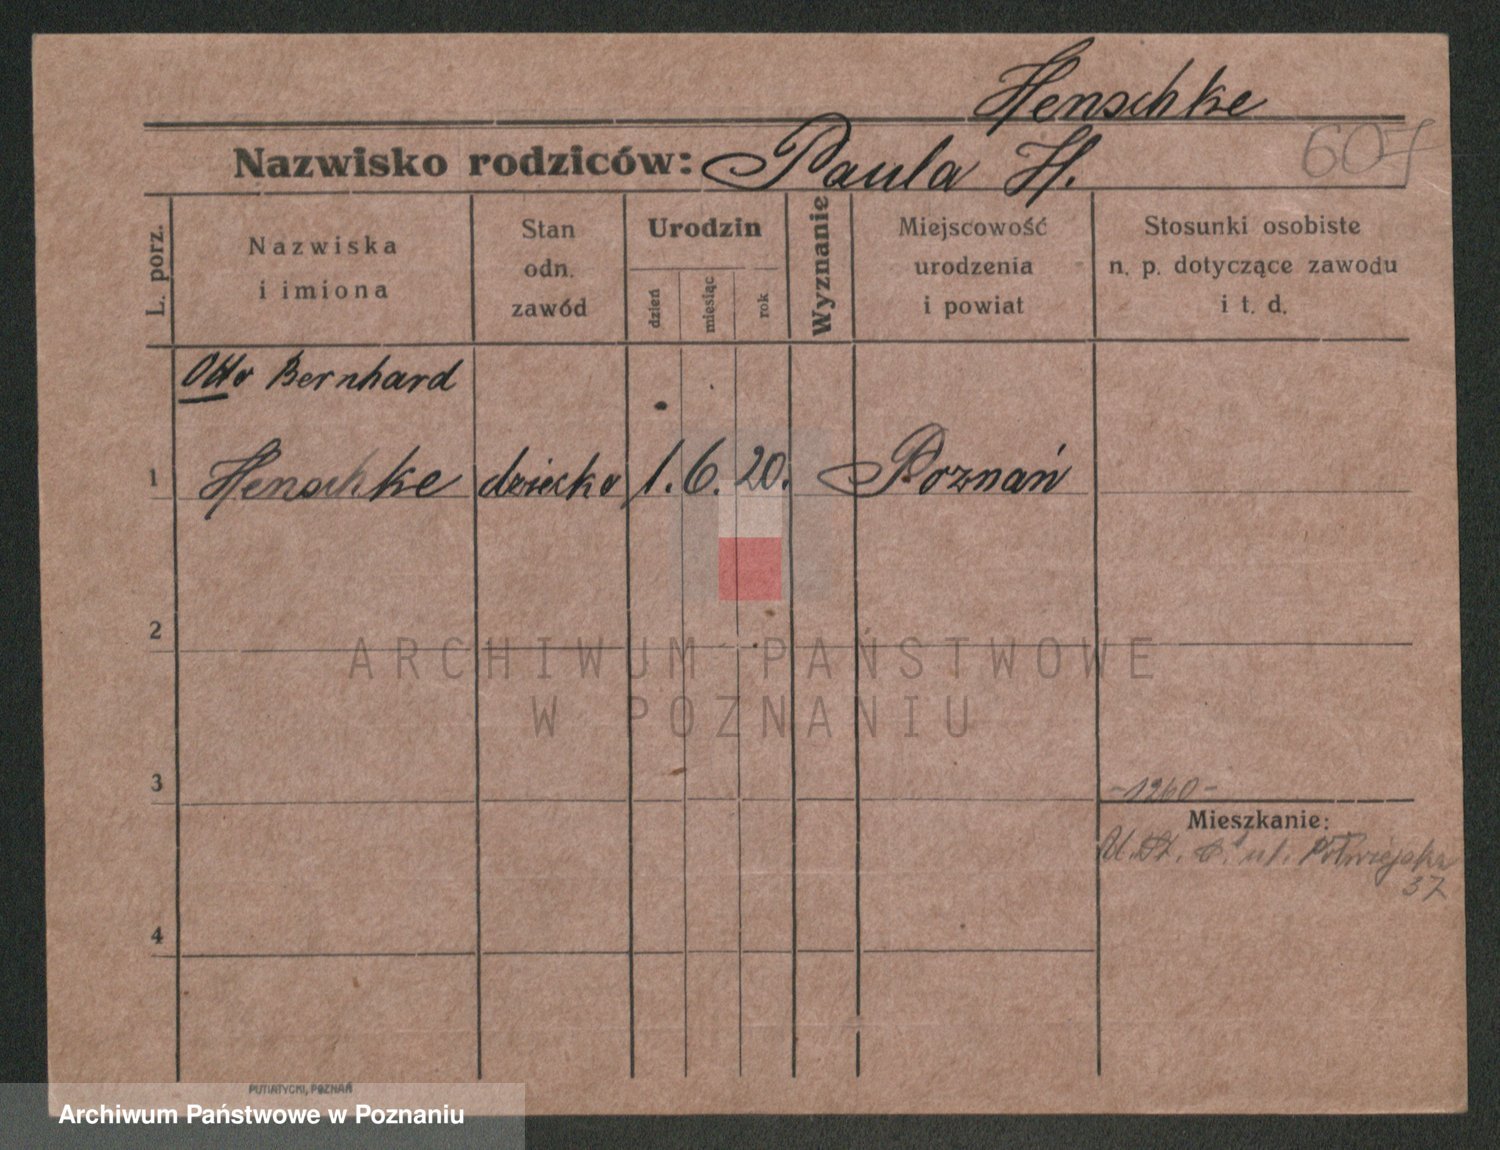 Henschke
Nazwisko rodziców: Paula H.
607
L. porz.
Nazwiska
i imiona
Stan
odn.
zawód
Urodzin
dzień
miesiąc
rok
Wyznanie
Miejscowość
urodzenia
i powiat
Stosunki osobiste
n. p. dotyczące zawodu
i t. d.
Otto Bernhard
1 Henschke dziecko 1. 6. 20. Poznań
2
ARCHIWUM PAŃSTWOWE
W POZNANIU
3
-1260-
Mieszkanie:
ul. Półwiejska
37
4
PUTIATYCKI, POZNAŃ
Archiwum Państwowe w Poznaniu